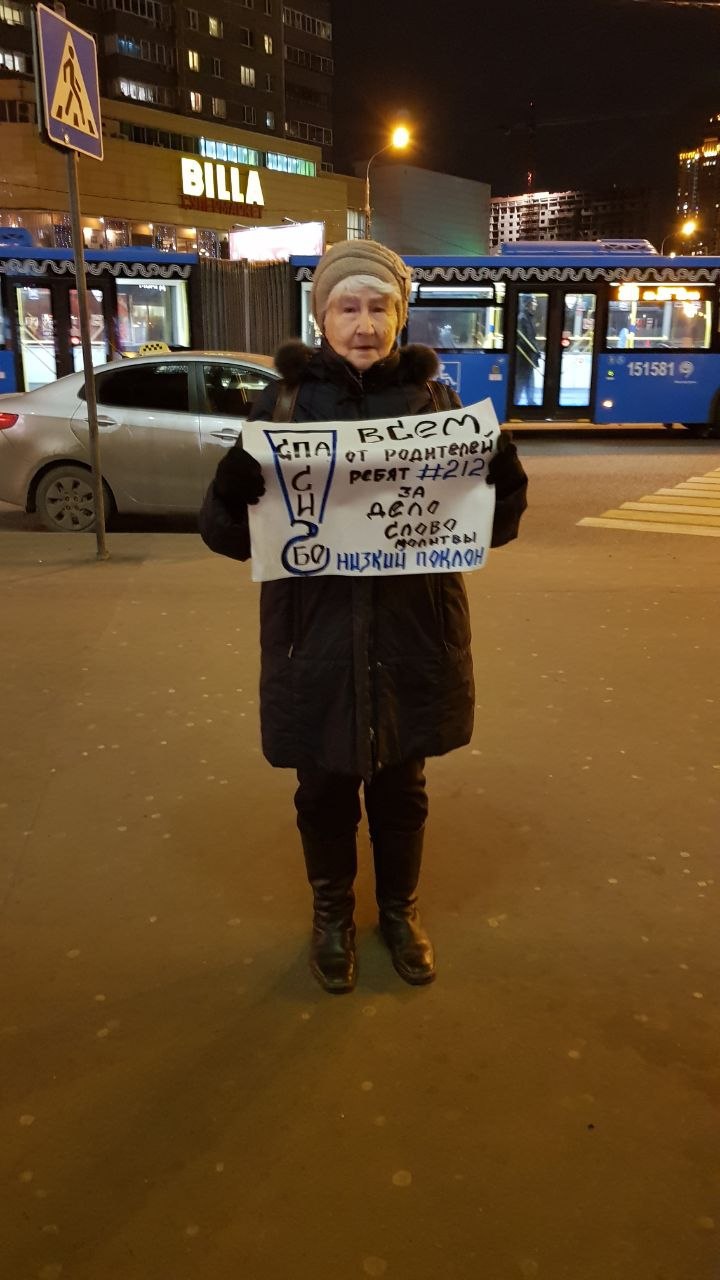 BILLA
СУПЕРМАРКЕТ
СПА
СИ
БО
ВСЕМ
ОТ РОДИТЕЛЕЙ
РЕБЯТ #212
ЗА
ДЕЛО
СЛОВО
МОЛИТВЫ
НИЗКИЙ ПОКЛОН
151581